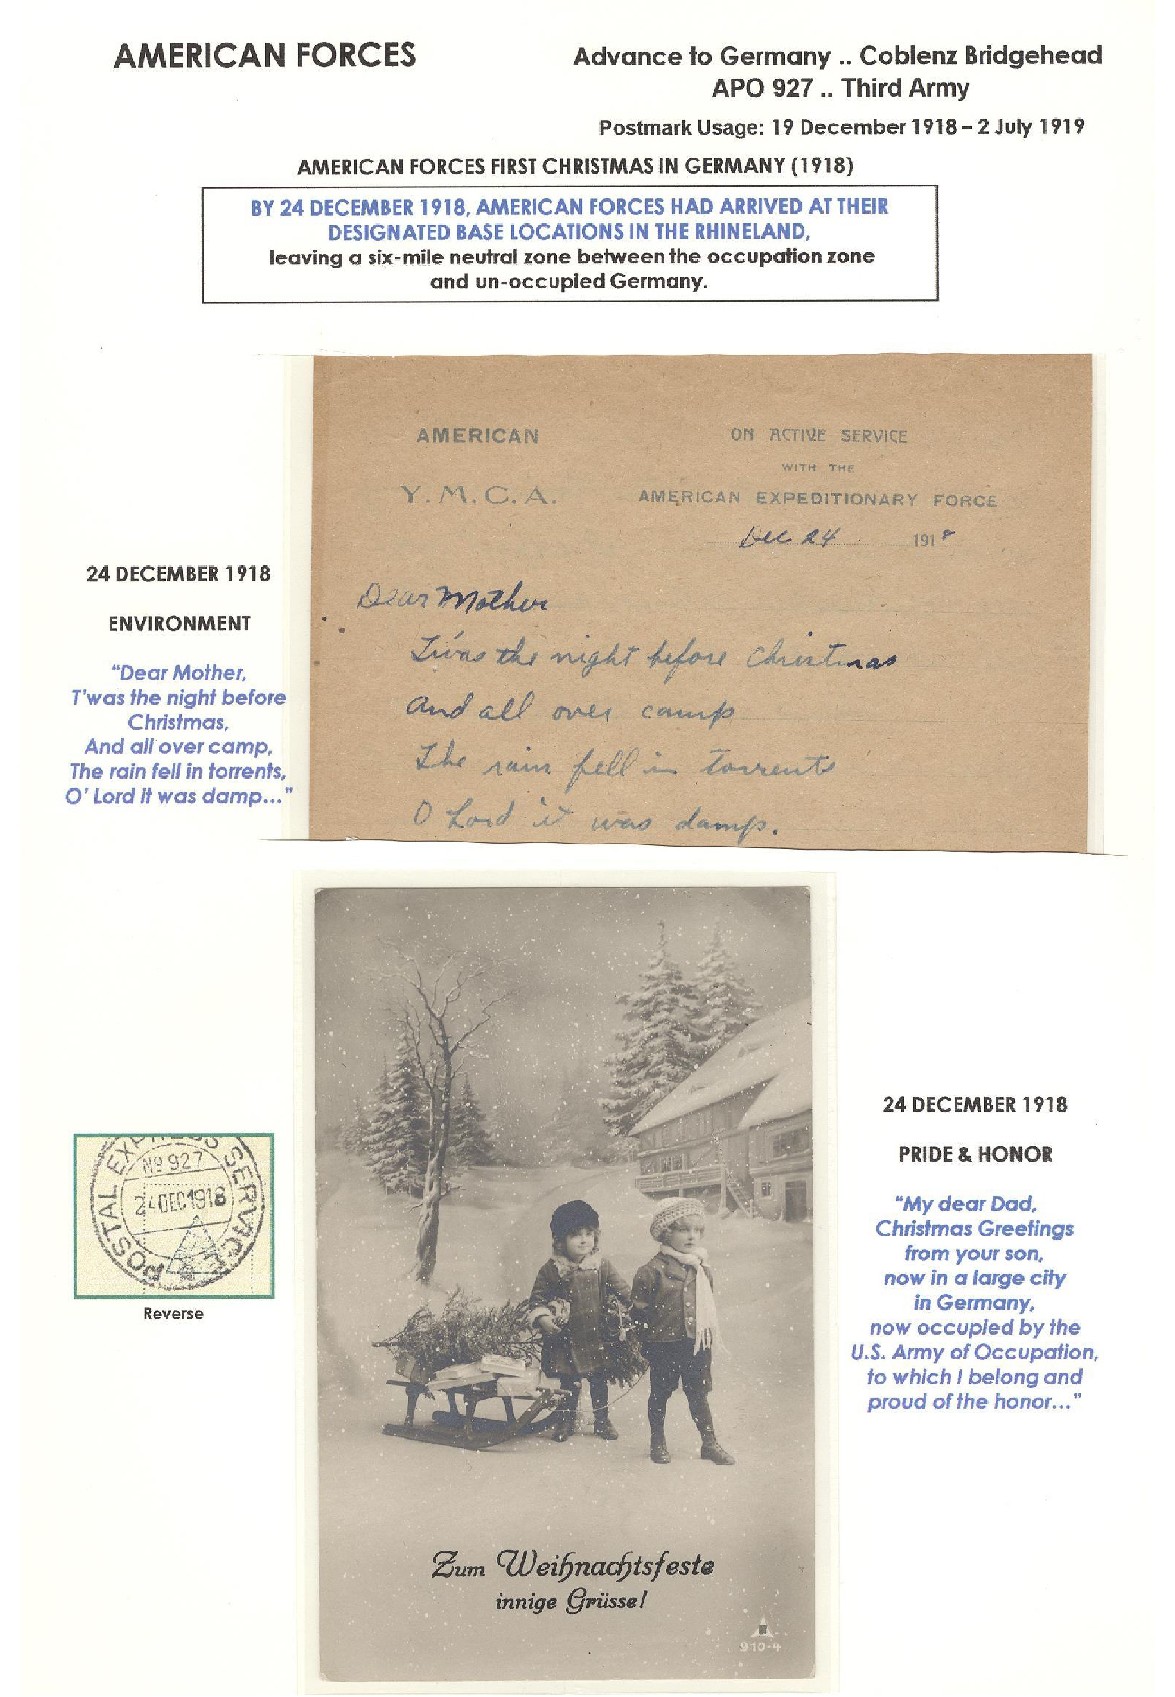 AMERICAN FORCES
Advance to Germany .. Coblenz Bridgehead
APO 927 .. Third Army
Postmark Usage: 19 December 1918 – 2 July 1919
AMERICAN FORCES FIRST CHRISTMAS IN GERMANY (1918)
BY 24 DECEMBER 1918, AMERICAN FORCES HAD ARRIVED AT THEIR
DESIGNATED BASE LOCATIONS IN THE RHINELAND,
leaving a six-mile neutral zone between the occupation zone
and un-occupied Germany.
AMERICAN
Y.M.C.A.
ON ACTIVE SERVICE
WITH THE
AMERICAN EXPEDITIONARY FORCE
Dec 24 1918
Dear Mother
T'was the night before Christmas
And all over camp
The rain fell in torrents
O Lord it was damp.
24 DECEMBER 1918
ENVIRONMENT
"Dear Mother,
T'was the night before
Christmas,
And all over camp,
The rain fell in torrents,
O' Lord It was damp..."
POSTAL EXPRESS SERVICE
No 927
24 DEC 1918
Reverse
24 DECEMBER 1918
PRIDE & HONOR
"My dear Dad,
Christmas Greetings
from your son,
now in a large city
in Germany,
now occupied by the
U.S. Army of Occupation,
to which I belong and
proud of the honor..."
Zum Weihnachtsfeste
innige Grüsse!
910-4